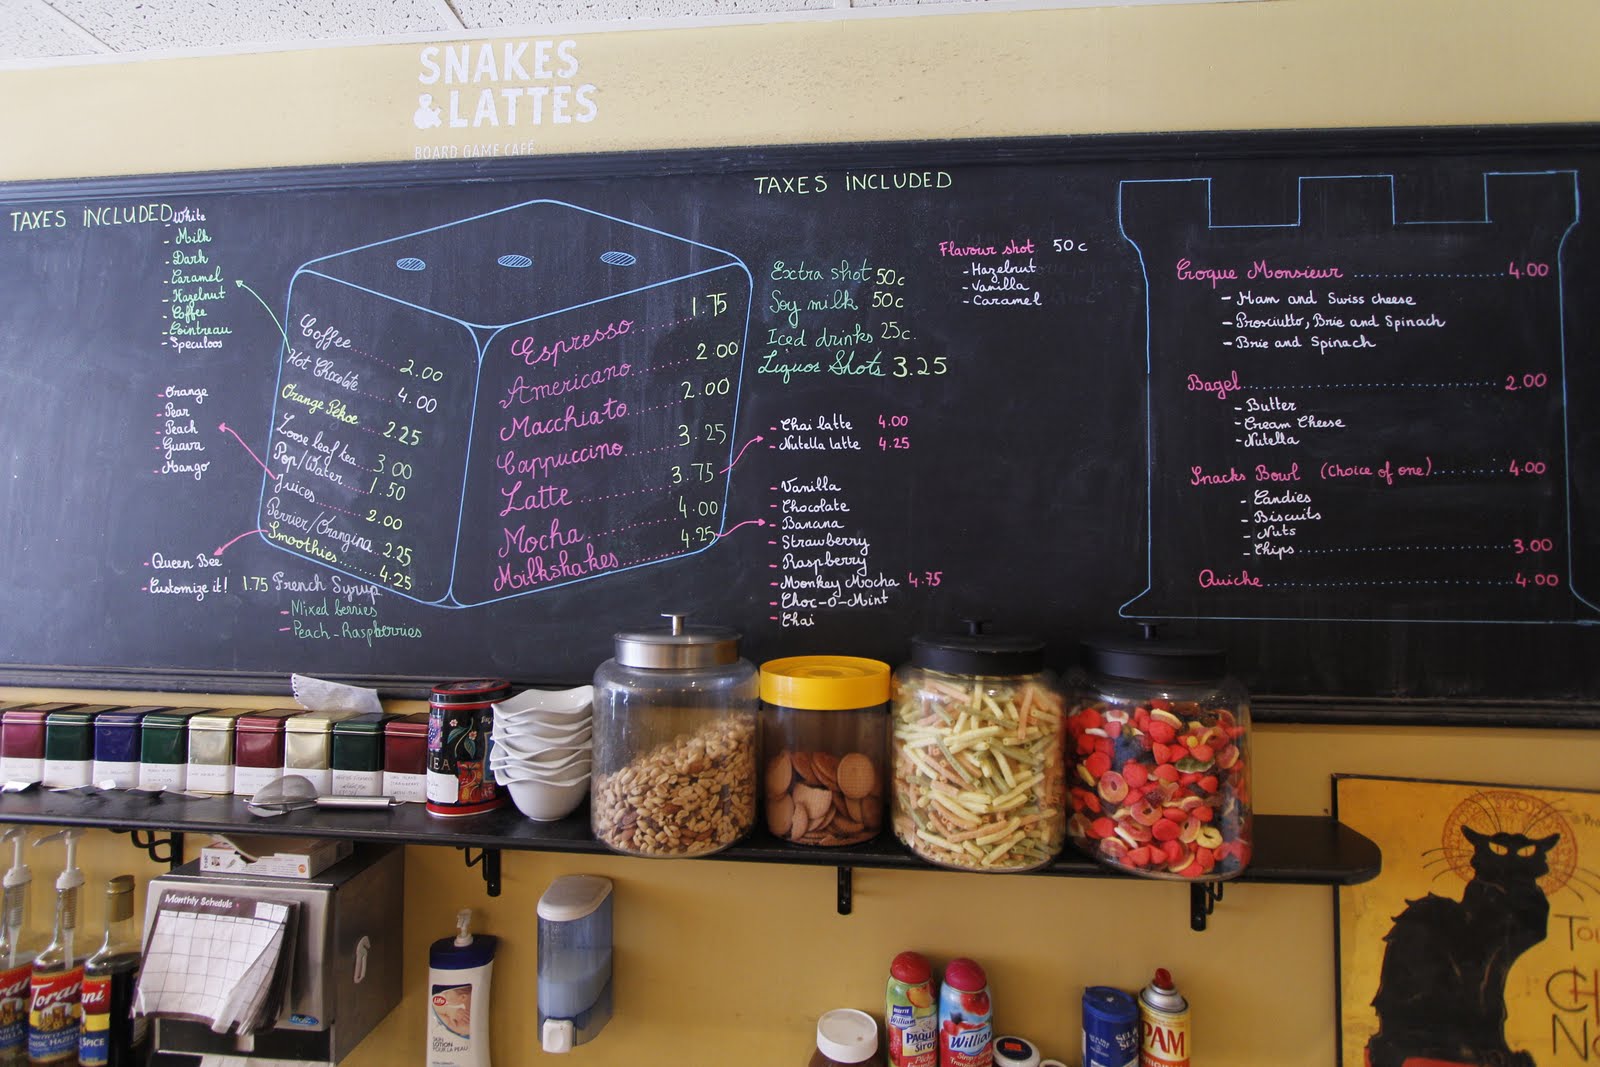 SNAKES
& LATTES
BOARD GAME CAFÉ
TAXES INCLUDED
- White
- Milk
- Dark
- Caramel
- Hazelnut
- Coffee
- Cointreau
- Speculoos
- Orange
- Pear
- Peach
- Guava
- Mango
- Queen Bee
- Customize it!
1.75 French Syrup
- Mixed berries
- Peach-Raspberries
Coffee........2.00
Hot Chocolate....4.00
Orange Pekoe...2.25
Loose leaf tea...3.00
Pop/Water......1.50
Juices........2.00
Perrier/Orangina..2.25
Smoothies.......4.25
Espresso.......1.75
Americano.......2.00
Macchiato.......2.00
Cappuccino......3.25
Latte..........3.75
Mocha..........4.00
Milkshakes......4.25
TAXES INCLUDED
Extra shot 50c
Soy milk 50c
Iced drinks 25c.
Liquor Shots 3.25
Flavour shot 50c
- Hazelnut
- Vanilla
- Caramel
- Chai latte 4.00
- Nutella latte 4.25
- Vanilla
- Chocolate
- Banana
- Strawberry
- Raspberry
- Monkey Mocha 4.75
- Choc-O-Mint
- Chai
Croque Monsieur ..................4.00
- Ham and Swiss cheese
- Prosciutto, Brie and Spinach
- Brie and Spinach
Bagel..............................2.00
- Butter
- Cream Cheese
- Nutella
Snacks Bowl (Choice of one)..........4.00
- Candies
- Biscuits
- Nuts
- Chips..............................3.00
Quiche..............................4.00
TEA
Monthly Schedule
Torani
SPICE
Life
SKIN
LOTION
POUR LA PEAU
William
William
SPAM